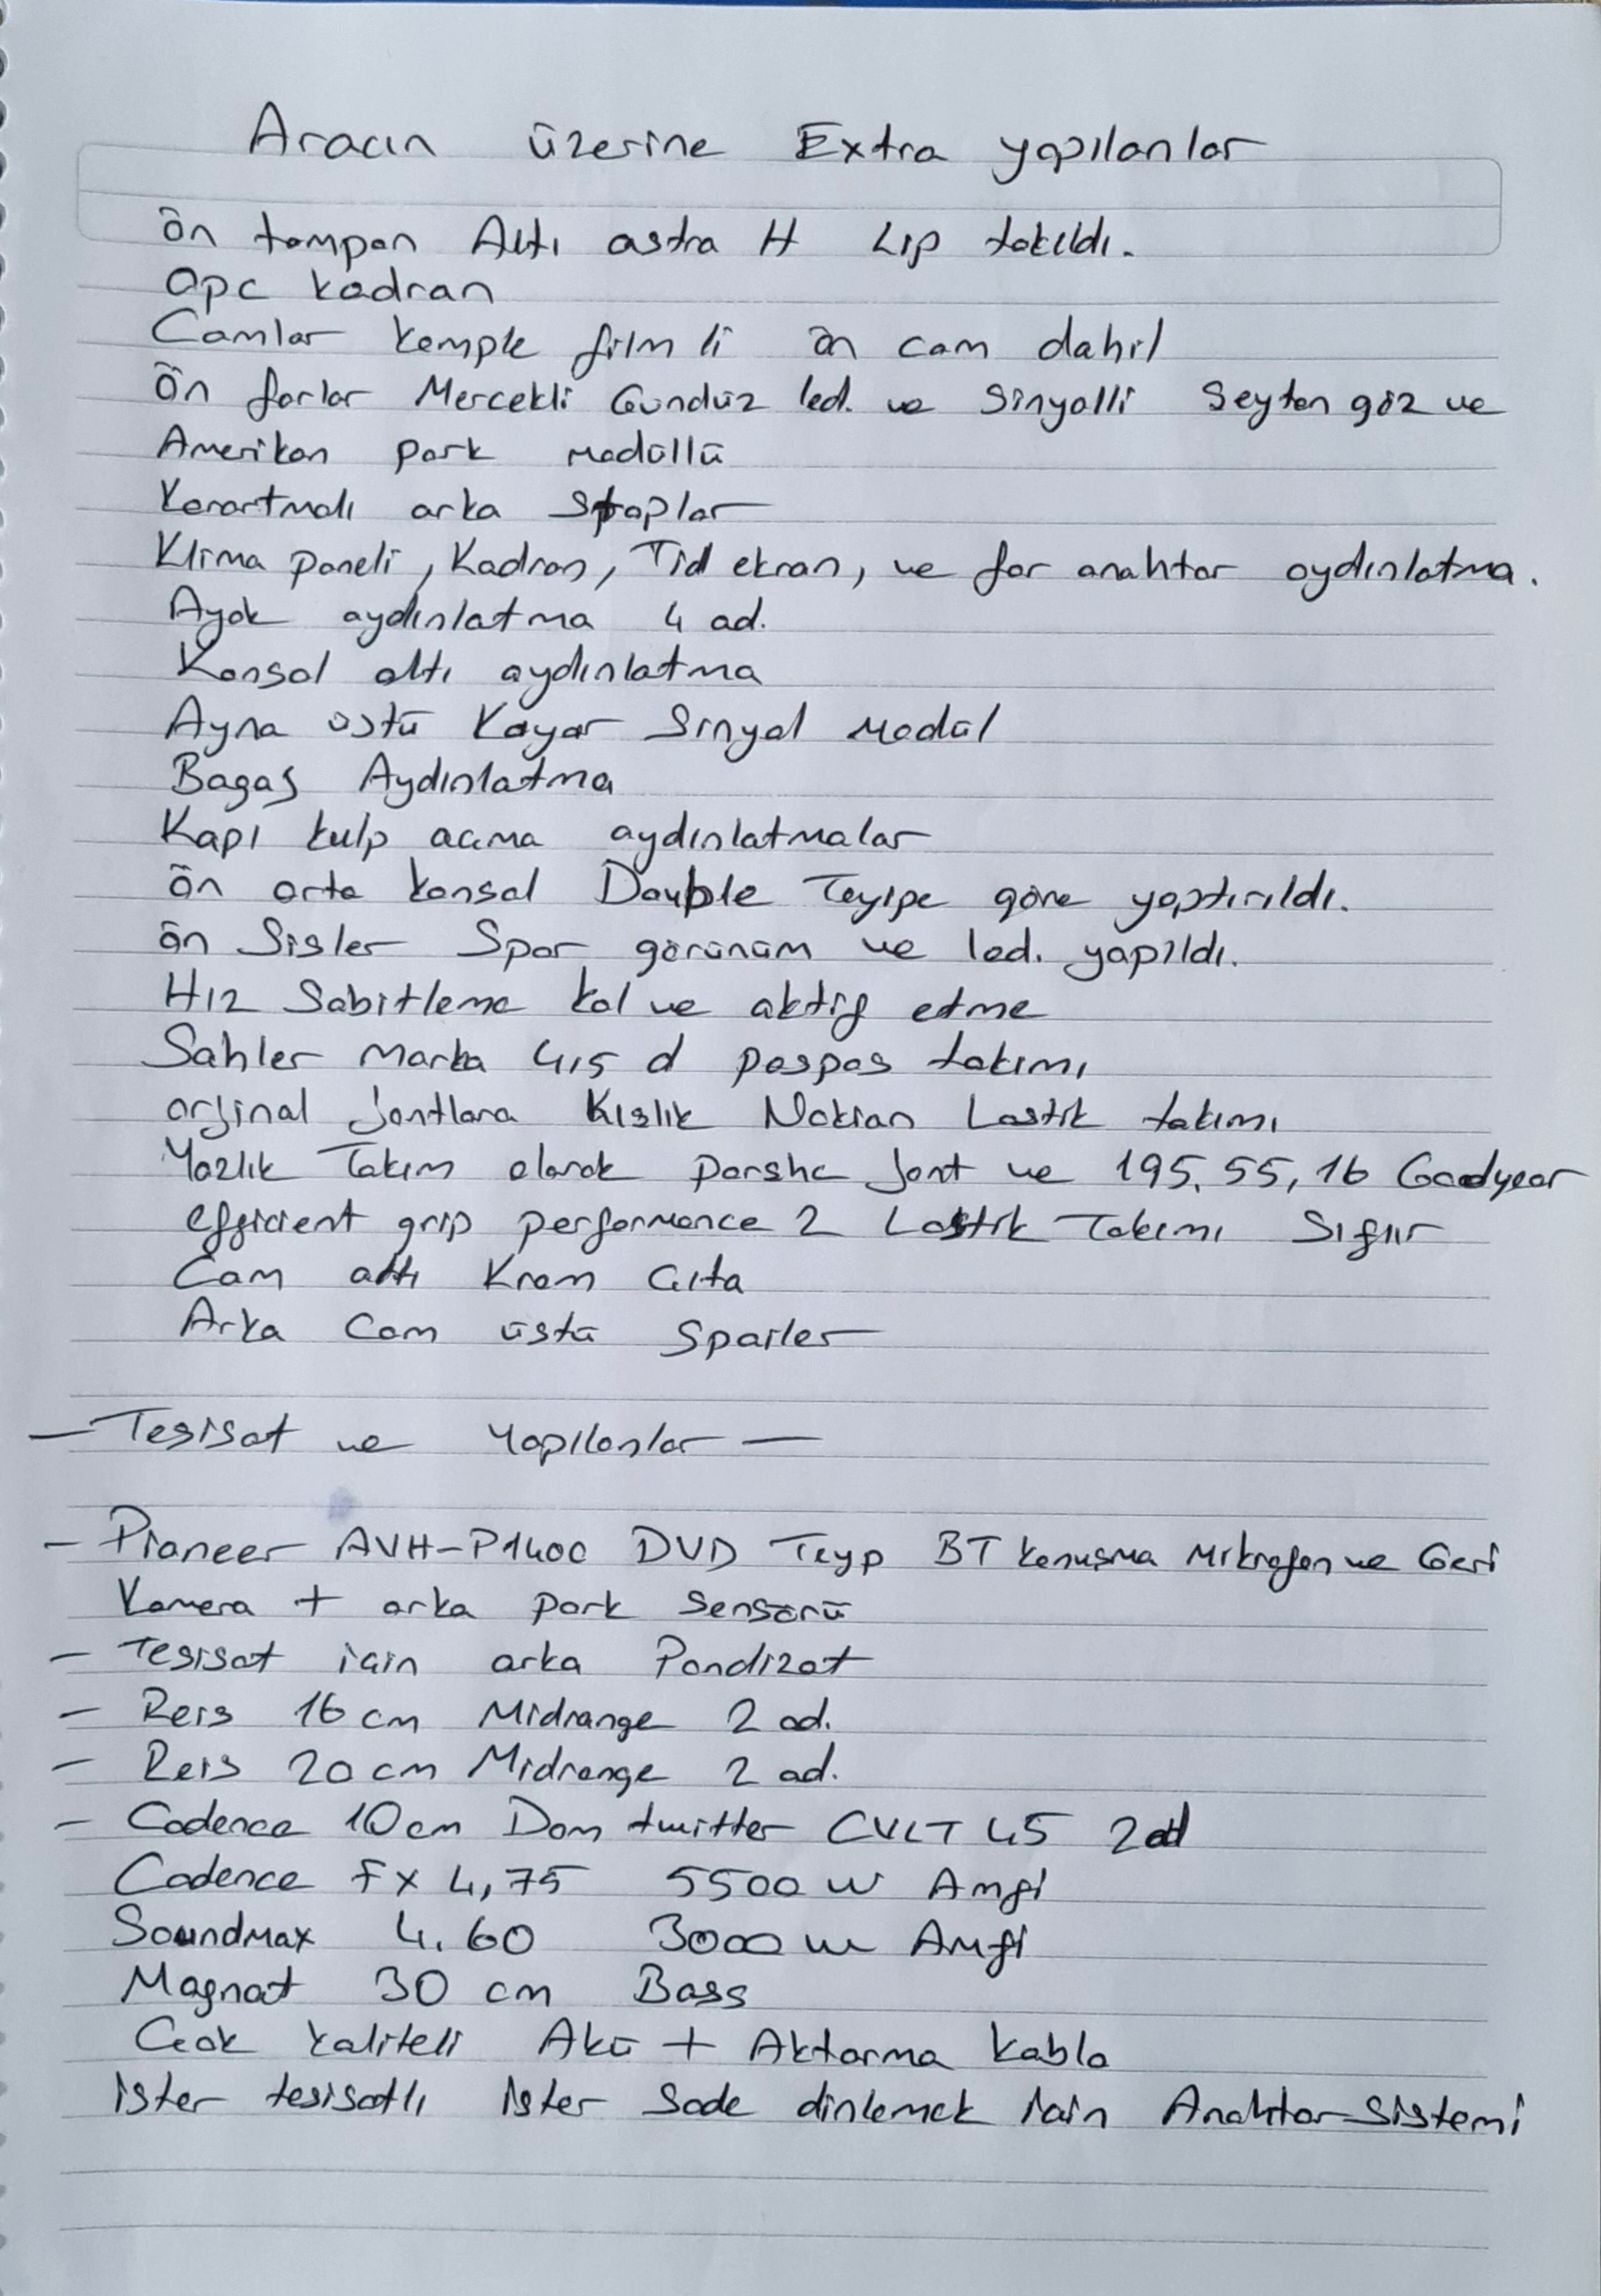 Aracın üzerine Extra yapılanlar
Ön tampon Altı astra H Lip takıldı.
Opc kadran
Camlar komple filmli ön cam dahil
Ön farlar Mercekli Gündüz led. ve Sinyalli Seytan göz ve
Amerikan park modüllü
Karartmalı arka stoplar
Klima paneli, Kadran, Tid ekran, ve far anahtar aydınlatma.
Ayak aydınlatma 4 ad.
Konsol altı aydınlatma
Ayna üstü Kayar Sinyal modül
Bagaş Aydınlatma
Kapı kulp açma aydınlatmalar
Ön orta konsol Double Teyipe göre yaptırıldı.
Ön Sisler Spor görünüm ve led. yapıldı.
Hız Sabitleme kol ve aktif etme
Sahler Marka 4,5 d paspas takımı
orjinal jantlara Kışlık Nokian Lastik takımı
Yazlık Takım olarak porshe Jant ve 195, 55, 16 Goodyear
efficient grip performance 2 Lastik Takımı Sıfır
Cam altı Krom Çıta
Arka Cam üstü Spoiler
— Tesisat ve Yapılanlar —
- Pioneer AVH-P1400 DVD Teyp BT konuşma Mikrofon ve Geri
Kamera + arka park sensörü
- Tesisat için arka Pandizot
- Reis 16 cm Midrange 2 ad.
- Reis 20 cm Midrange 2 ad.
- Cadence 10 cm Dom twitter CVLT 45 2 ad
Cadence Fx 4,75 5500 w Amfi
Soundmax 4.60 3000 w Amfi
Magnat 30 cm Bass
Çok kaliteli Akü + Aktarma Kablo
ister tesisatlı ister Sade dinlemek için Anahtar Sistemi